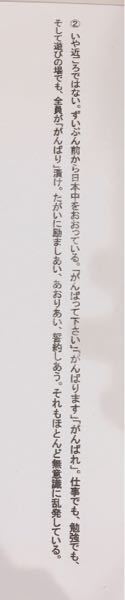 ② いや近ごろではない。ずいぶん前から日本中をおおっている。「がんばって下さい」「がんばります」「がんばれ」。仕事でも、勉強でも、
そして遊びの場でも、全員が「がんばり」漬け。たがいに励ましあい、あおりあい、誓約しあう。それもほとんど無意識に乱発している。